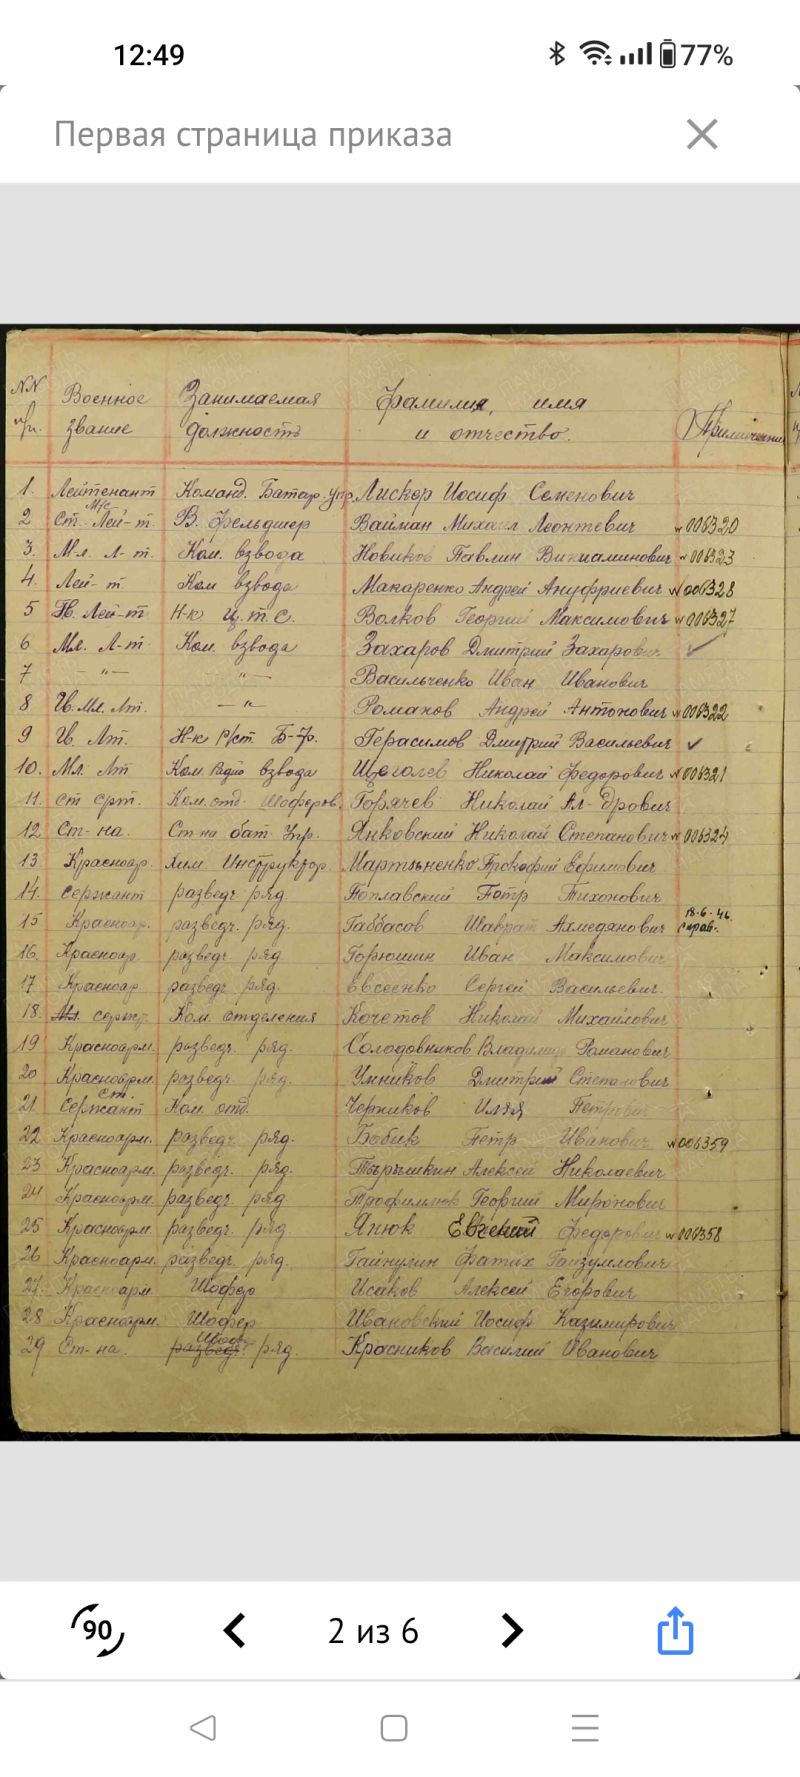 12:49 77%
Первая страница приказа
NN Военное Занимаемая Фамилия, имя
п/п. звание должность и отчество. Примечание
1. Лейтенант Команд. Батар. упр. Лискер Иосиф Семенович
2 Ст. М/с Лей-т. В. фельдшер Вайман Михаил Леонтевич N006320
3. Мл. Л-т. Ком. взвода Новиков Павлин Вининаминович N006323
4. Лей-т. Ком взвода Макаренко Андрей Ануфриевич N006328
5 Гв. Лей-т Н-к ц.т.с. Волков Георгий Максимович N006327
6 Мл. Л-т Ком. взвода Захаров Дмитрий Захарович ✓
7 —"— —"— Васильченко Иван Иванович
8 Гв. Мл. Лт. —"— Романов Андрей Антонович N006322
9 Гв. Лт. Н-к р/ст. Б-р. Герасимов Дмитрий Васильевич ✓
10. Мл. Лт Ком. Радио взвода Щеголев Николай Федорович N006321
11. Ст срт. Ком. отд. Шоферов. Горячев Николай Ал-дрович
12. Ст-на. Ст-на бат. Упр. Янковский Николай Степанович N006324
13 Красноар. Хим. Инструктор Мартыненко Прокофий Ефимович
14. Сержант разведч ряд. Поплавский Петр Тихонович
15 Красноар. разведч. ряд. Габбасов Шаврат Ахмедянович 18.6-46. справ.
16. Красноар разведч ряд. Горюшин Иван Максимович
17. Красноар разведч ряд. Евсеенко Сергей Васильевич.
18. Мл. серж. Ком. отделения Кочетов Николай Михайлович
19 Красноарм. разведч. ряд. Солодовников Владимир Романович
20 Красноарм. разведч. ряд. Умников Дмитрий Степанович
21 Ст. Сержант Ком. отд. Черников Илья Петрович
22 Красноарм. разведч. ряд. Бобик Петр Иванович N006359
23 Красноарм. разведч. ряд. Тырышкин Алексей Николаевич
24 Красноарм. разведч. ряд Трофимлюк Георгий Миронович
25 Красноарм. разведч. ряд. Янюк Евгений Федорович N006358
26 Красноарм. разведч. ряд. Гайнулин Фатих Гайзуллович
27. Красноарм. Шофер Исаков Алексей Егорович
28 Красноарм. Шофер Ивановский Иосиф Казимирович
29 Ст-на. разведч. Шоф. ряд. Красников Василий Иванович
90 2 из 6